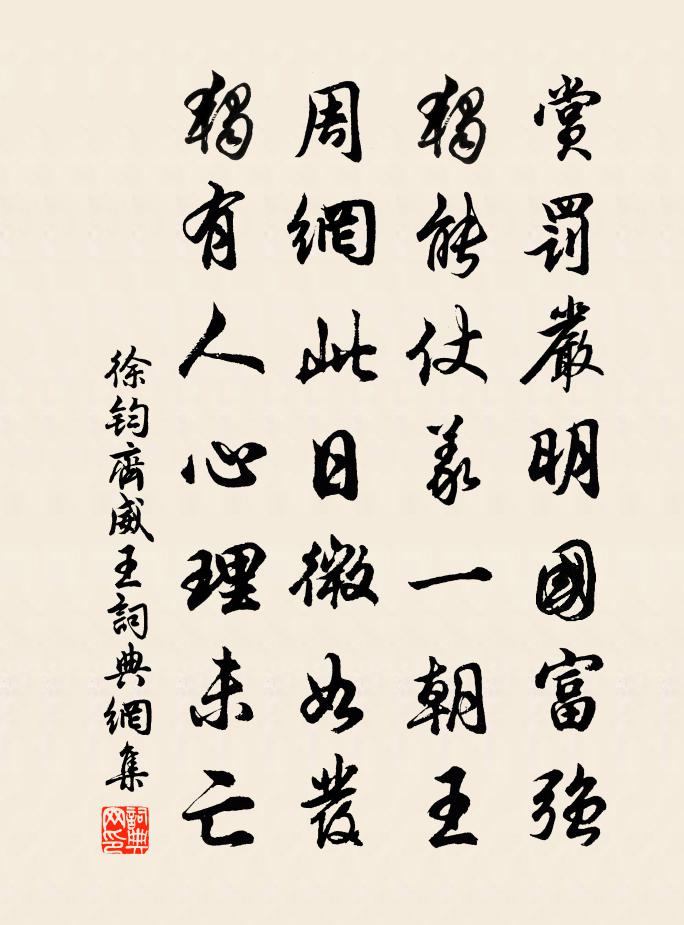 賞罰嚴明國富強
獨能仗義一朝王
周網此日微如發
獨有人心理未亡
徐鈞齊威王詞典網集
詞典網印